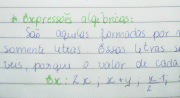 * Expressões algébricas:
São aquelas formadas por
somente letras. Essas letras
veis, porque o valor de cada
Ex: 2x; x+y, x-1,